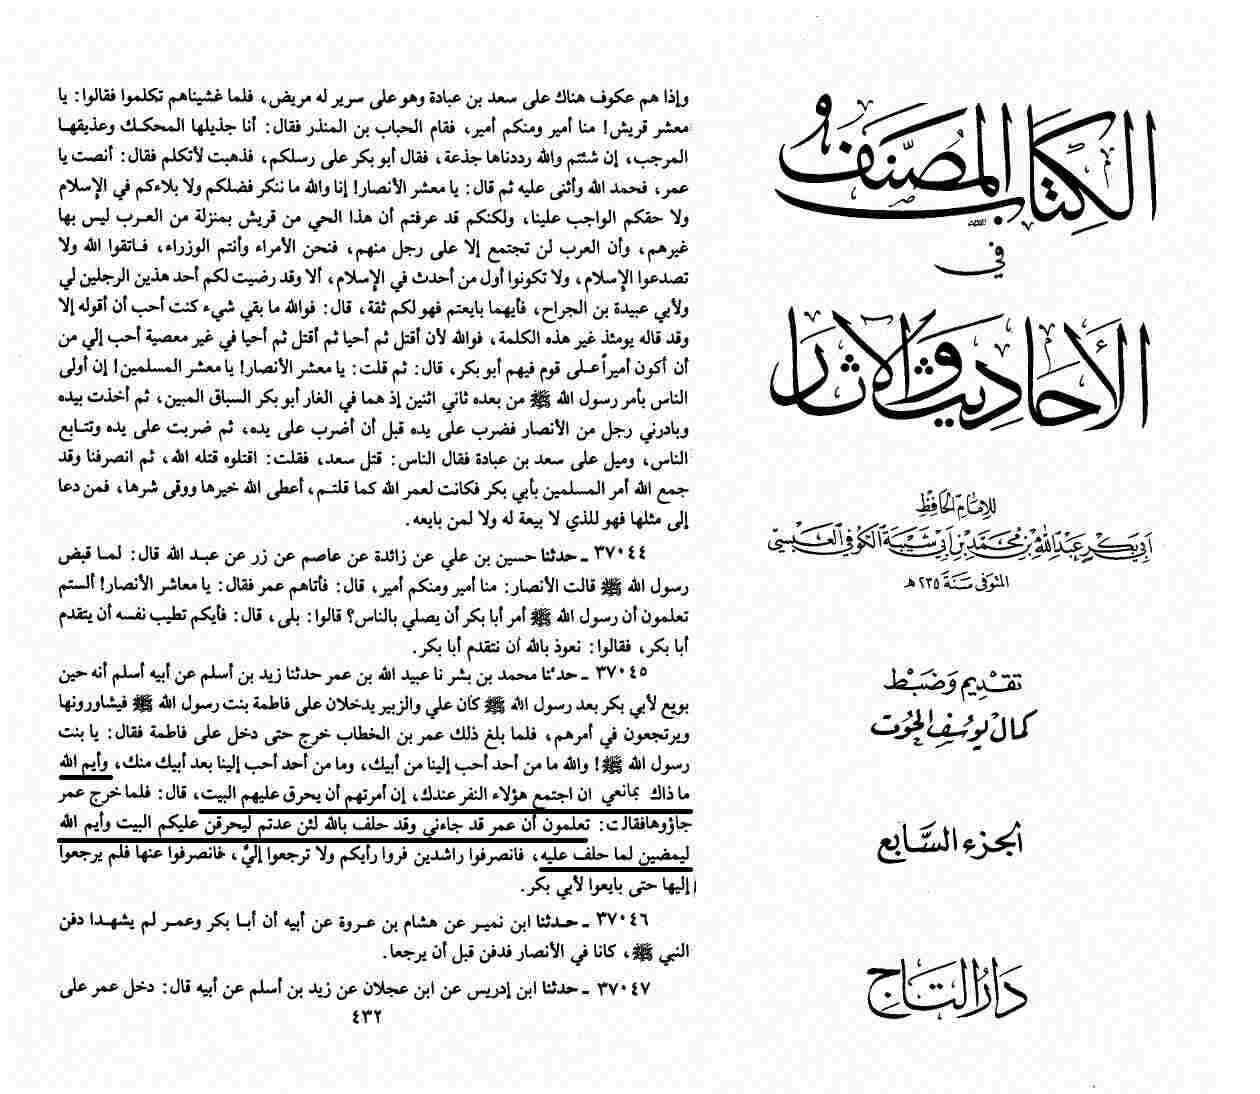 الكتاب المصنف
في
الأحاديث والآثار
للإمام الحافظ
أبي بكر عبد الله بن محمد بن أبي شيبة الكوفي العبسي
المتوفى سنة ٢٣٥ هـ
تقديم وضبط
كمال يوسف الحوت
الجزء السابع
دار التاج
وإذا هم عكوف هناك على سعد بن عبادة وهو على سرير له مريض، فلما غشيناهم تكلموا فقالوا: يا
معشر قريش! منا أمير ومنكم أمير، فقام الحباب بن المنذر فقال: أنا جذيلها المحكك وعذيقها
المرجب، إن شئتم والله رددناها جذعة، فقال أبو بكر على رسلكم، فذهبت لأتكلم فقال: أنصت يا
عمر، فحمد الله وأثنى عليه ثم قال: يا معشر الأنصار! إنا والله ما ننكر فضلكم ولا بلاءكم في الإسلام
ولا حقكم الواجب علينا، ولكنكم قد عرفتم أن هذا الحي من قريش بمنزلة من العرب ليس بها
غيرهم، وأن العرب لن تجتمع إلا على رجل منهم، فنحن الأمراء وأنتم الوزراء، فاتقوا الله ولا
تصدعوا الإسلام، ولا تكونوا أول من أحدث في الإسلام، ألا وقد رضيت لكم أحد هذين الرجلين لي
ولأبي عبيدة بن الجراح، فأيهما بايعتم فهو لكم ثقة، قال: فوالله ما بقي شيء كنت أحب أن أقوله إلا
وقد قاله يومئذ غير هذه الكلمة، فوالله لأن أقتل ثم أحيا ثم أقتل ثم أحيا في غير معصية أحب إلي من
أن أكون أميراً على قوم فيهم أبو بكر، قال: ثم قلت: يا معشر الأنصار! يا معشر المسلمين! إن أولى
الناس بأمر رسول الله ﷺ من بعده ثاني اثنين إذ هما في الغار أبو بكر السباق المبين، ثم أخذت بيده
وبادرني رجل من الأنصار فضرب على يده قبل أن أضرب على يده، ثم ضربت على يده وتتابع
الناس، وميل على سعد بن عبادة فقال الناس: قتل سعد، فقلت: اقتلوه قتله الله، ثم انصرفنا وقد
جمع الله أمر المسلمين بأبي بكر فكانت لعمر الله كما قلتم، أعطى الله خيرها ووقى شرها، فمن دعا
إلى مثلها فهو للذي لا بيعة له ولا لمن بايعه.
٣٧٠٤٤ ـ حدثنا حسين بن علي عن زائدة عن عاصم عن زر عن عبد الله قال: لما قبض
رسول الله ﷺ قالت الأنصار: منا أمير ومنكم أمير، قال: فأتاهم عمر فقال: يا معاشر الأنصار! ألستم
تعلمون أن رسول الله ﷺ أمر أبا بكر أن يصلي بالناس؟ قالوا: بلى، قال: فأيكم تطيب نفسه أن يتقدم
أبا بكر، فقالوا: نعوذ بالله أن نتقدم أبا بكر.
٣٧٠٤٥ ـ حدثنا محمد بن بشر نا عبيد الله بن عمر حدثنا زيد بن أسلم عن أبيه أسلم أنه حين
بويع لأبي بكر بعد رسول الله ﷺ كان علي والزبير يدخلان على فاطمة بنت رسول الله ﷺ فيشاورونها
ويرتجعون في أمرهم، فلما بلغ ذلك عمر بن الخطاب خرج حتى دخل على فاطمة فقال: يا بنت
رسول الله ﷺ! والله ما من أحد أحب إلينا من أبيك، وما من أحد أحب إلينا بعد أبيك منك، وأيم الله
ما ذاك بمانعي ان اجتمع هؤلاء النفر عندك، إن أمرتهم أن يحرق عليهم البيت، قال: فلما خرج عمر
جاؤوها فقالت: تعلمون أن عمر قد جاءني وقد حلف بالله لئن عدتم ليحرقن عليكم البيت وأيم الله
ليمضين لما حلف عليه، فانصرفوا راشدين فروا رأيكم ولا ترجعوا إليّ، فانصرفوا عنها فلم يرجعوا
إليها حتى بايعوا لأبي بكر.
٣٧٠٤٦ ـ حدثنا ابن نمير عن هشام بن عروة عن أبيه أن أبا بكر وعمر لم يشهدا دفن
النبي ﷺ، كانا في الأنصار فدفن قبل أن يرجعا.
٣٧٠٤٧ ـ حدثنا ابن إدريس عن ابن عجلان عن زيد بن أسلم عن أبيه قال: دخل عمر على
٤٣٢